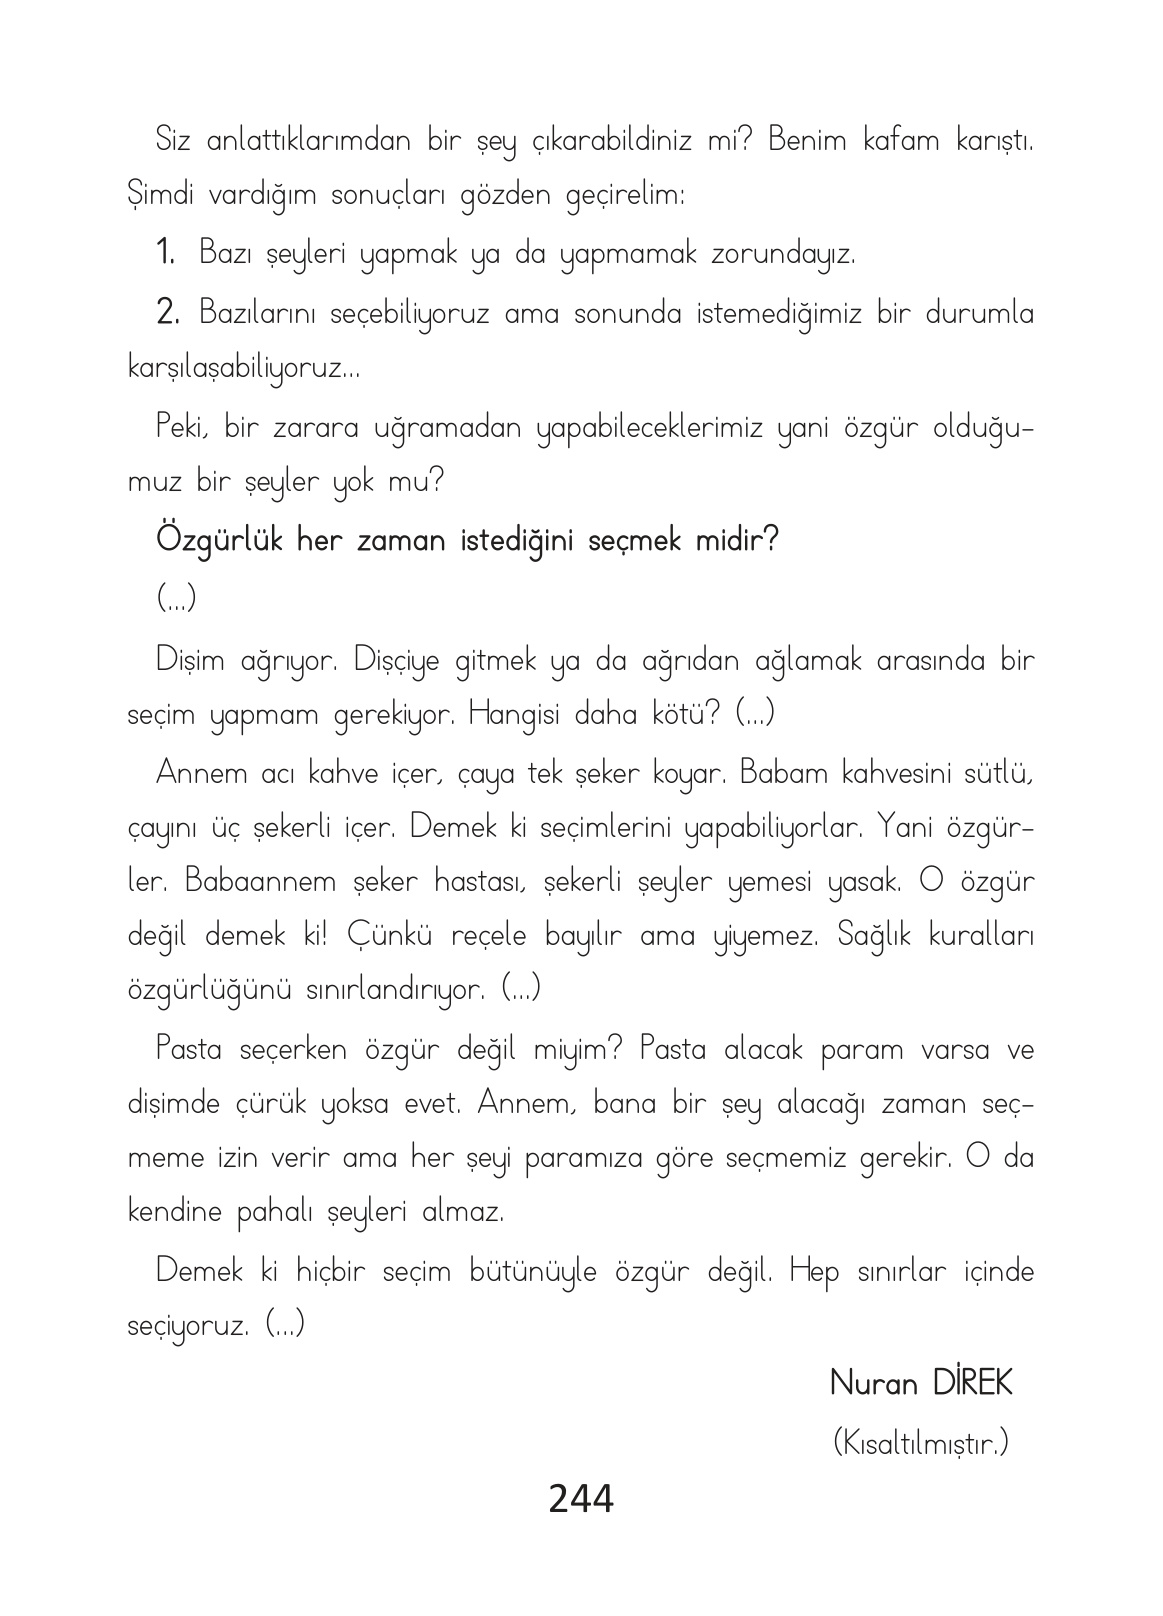 Siz anlattıklarımdan bir şey çıkarabildiniz mi? Benim kafam karıştı.
Şimdi vardığım sonuçları gözden geçirelim:
1. Bazı şeyleri yapmak ya da yapmamak zorundayız.
2. Bazılarını seçebiliyoruz ama sonunda istemediğimiz bir durumla
karşılaşabiliyoruz...
Peki, bir zarara uğramadan yapabileceklerimiz yani özgür olduğu-
muz bir şeyler yok mu?
Özgürlük her zaman istediğini seçmek midir?
(...)
Dişim ağrıyor. Dişçiye gitmek ya da ağrıdan ağlamak arasında bir
seçim yapmam gerekiyor. Hangisi daha kötü? (...)
Annem acı kahve içer, çaya tek şeker koyar. Babam kahvesini sütlü,
çayını üç şekerli içer. Demek ki seçimlerini yapabiliyorlar. Yani özgür-
ler. Babaannem şeker hastası, şekerli şeyler yemesi yasak. O özgür
değil demek ki! Çünkü reçele bayılır ama yiyemez. Sağlık kuralları
özgürlüğünü sınırlandırıyor. (...)
Pasta seçerken özgür değil miyim? Pasta alacak param varsa ve
dişimde çürük yoksa evet. Annem, bana bir şey alacağı zaman seç-
meme izin verir ama her şeyi paramıza göre seçmemiz gerekir. O da
kendine pahalı şeyleri almaz.
Demek ki hiçbir seçim bütünüyle özgür değil. Hep sınırlar içinde
seçiyoruz. (...)
Nuran DİREK
(Kısaltılmıştır.)
244